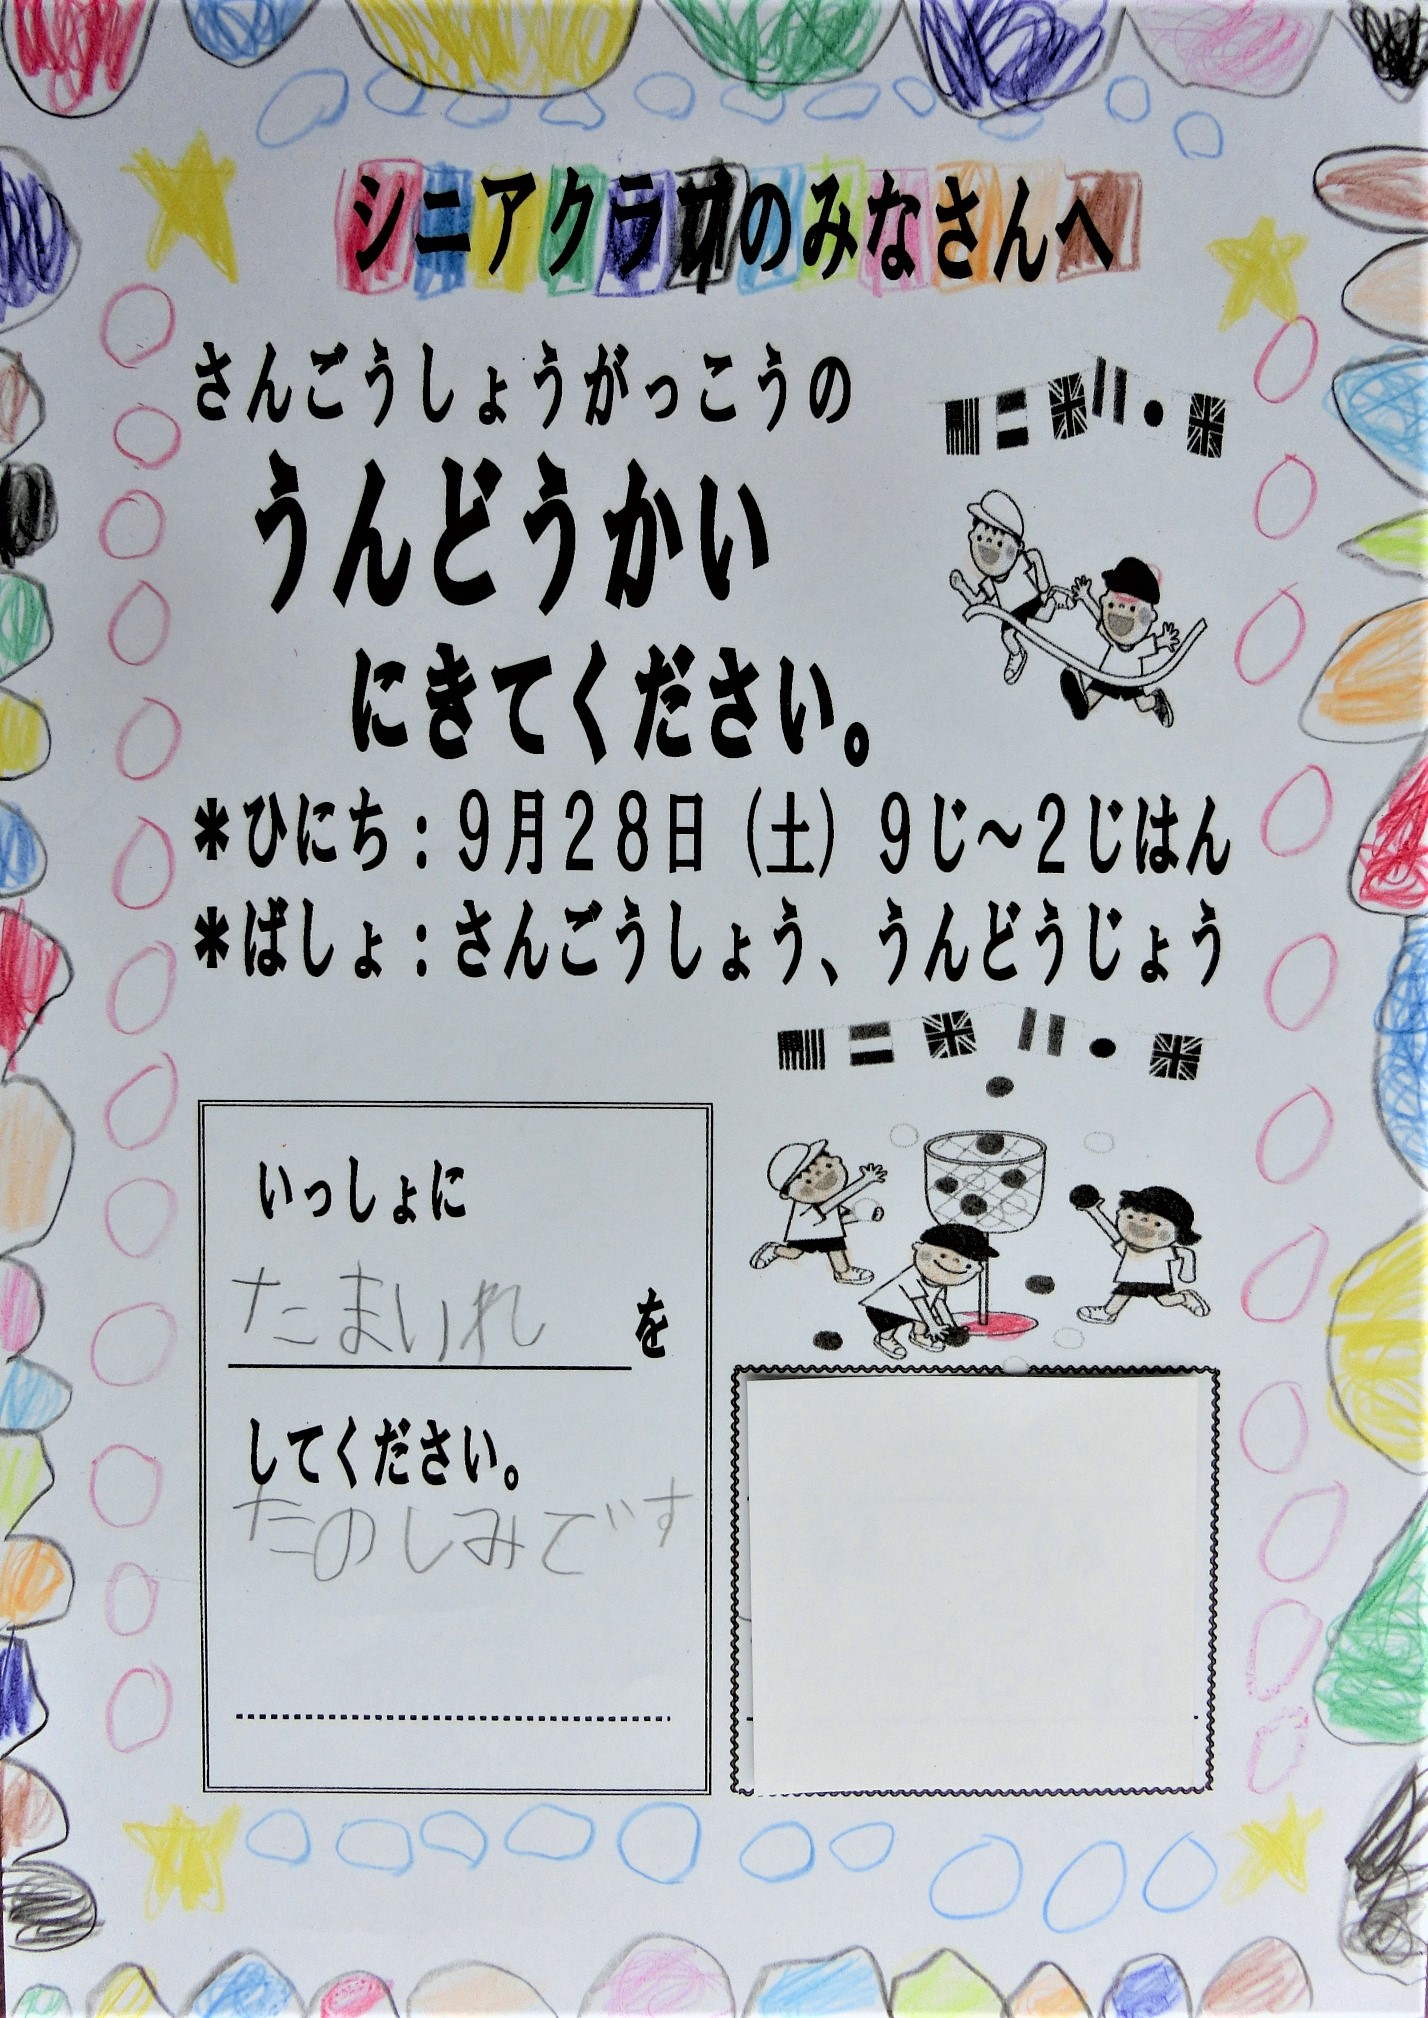 シニアクラブのみなさんへ
さんごうしょうがっこうの
うんどうかい
にきてください。
＊ひにち：９月２８日（土）９じ～２じはん
＊ばしょ：さんごうしょう、うんどうじょう
いっしょに
たまいれを
してください。
たのしみです